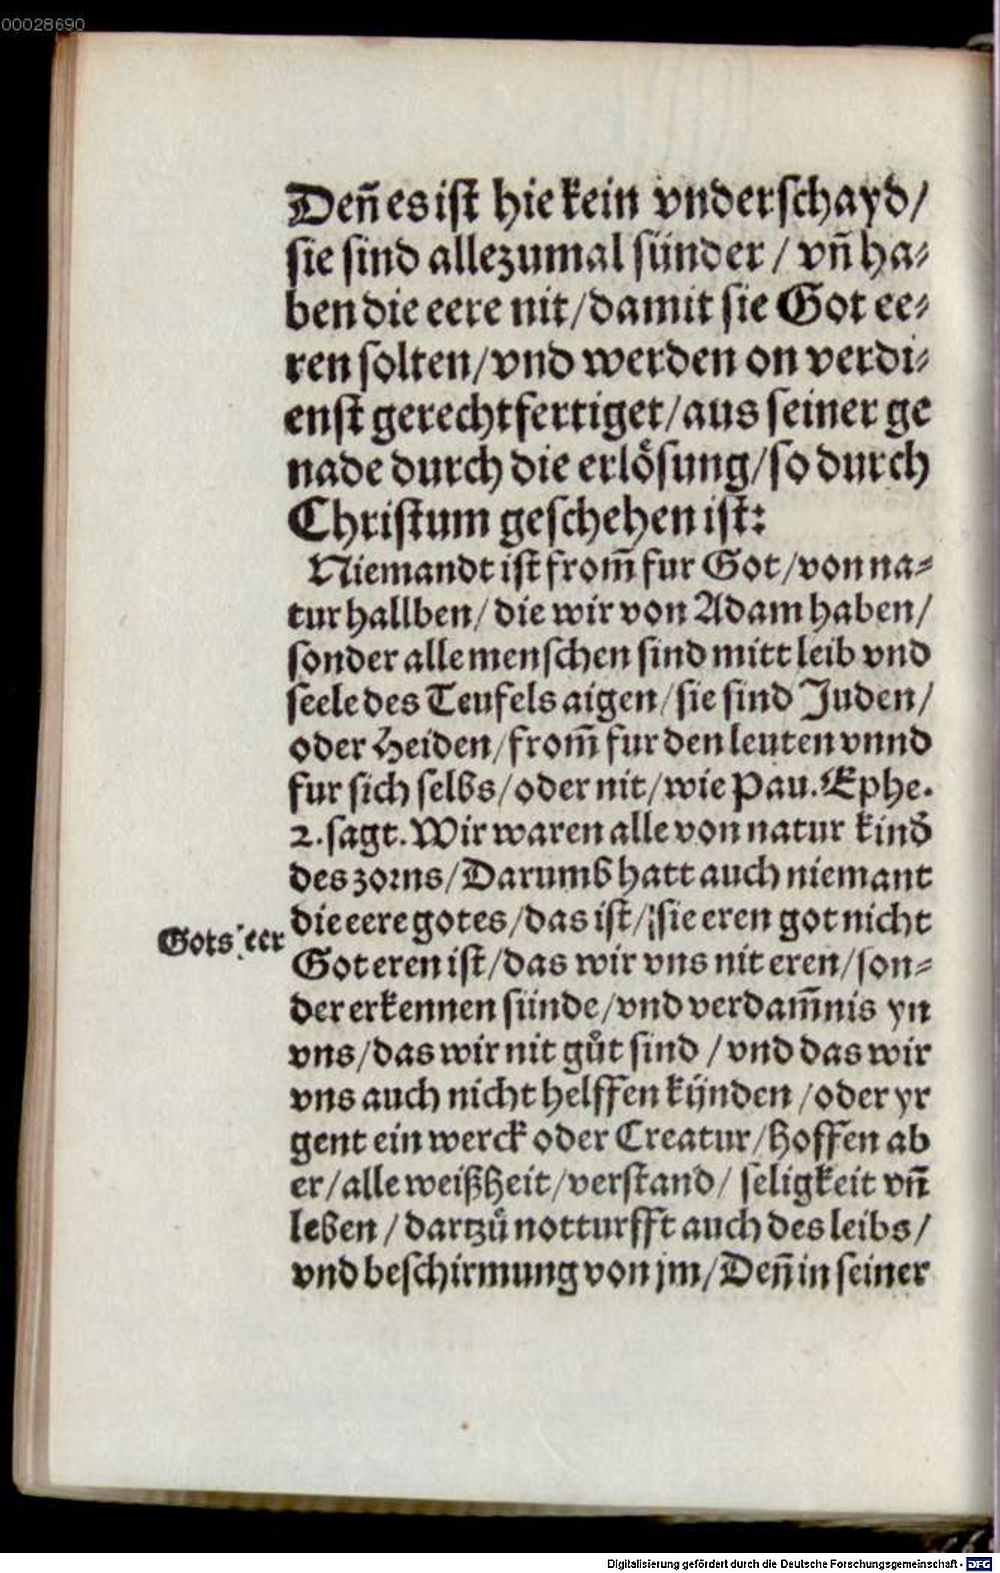 00028690
Deñ es ist hie kein vnderschayd/
sie sind allezumal sünder / vñ ha⸗
ben die eere nit/damit sie Got ee⸗
ren solten/vnd werden on verdi⸗
enst gerechtfertiget/aus seiner ge
nade durch die erlösung/so durch
Christum geschehen ist:
Niemandt ist from̃ fur Got/von na⸗
tur hallben/ die wir von Adam haben/
sonder alle menschen sind mitt leib vnd
seele des Teufels aigen/sie sind Juden/
oder Heiden/from̃ fur den leuten vnnd
fur sich selbs/oder nit/wie Pau. Ephe.
2. sagt. Wir waren alle von natur kind
des zorns/Darumb hatt auch niemant
die eere gotes/das ist/sie eren got nicht
Gots eer
Got eren ist/das wir vns nit eren/son⸗
der erkennen sünde/vnd verdam̃nis yn
vns/das wir nit gůt sind /vnd das wir
vns auch nicht helffen kÿnden /oder yr
gent ein werck oder Creatur/hoffen ab
er/alle weißheit/verstand/ seligkeit vñ
leben / dartzů notturfft auch des leibs/
vnd beschirmung von jm/Deñ in seiner
Digitalisierung gefördert durch die Deutsche Forschungsgemeinschaft - DFG